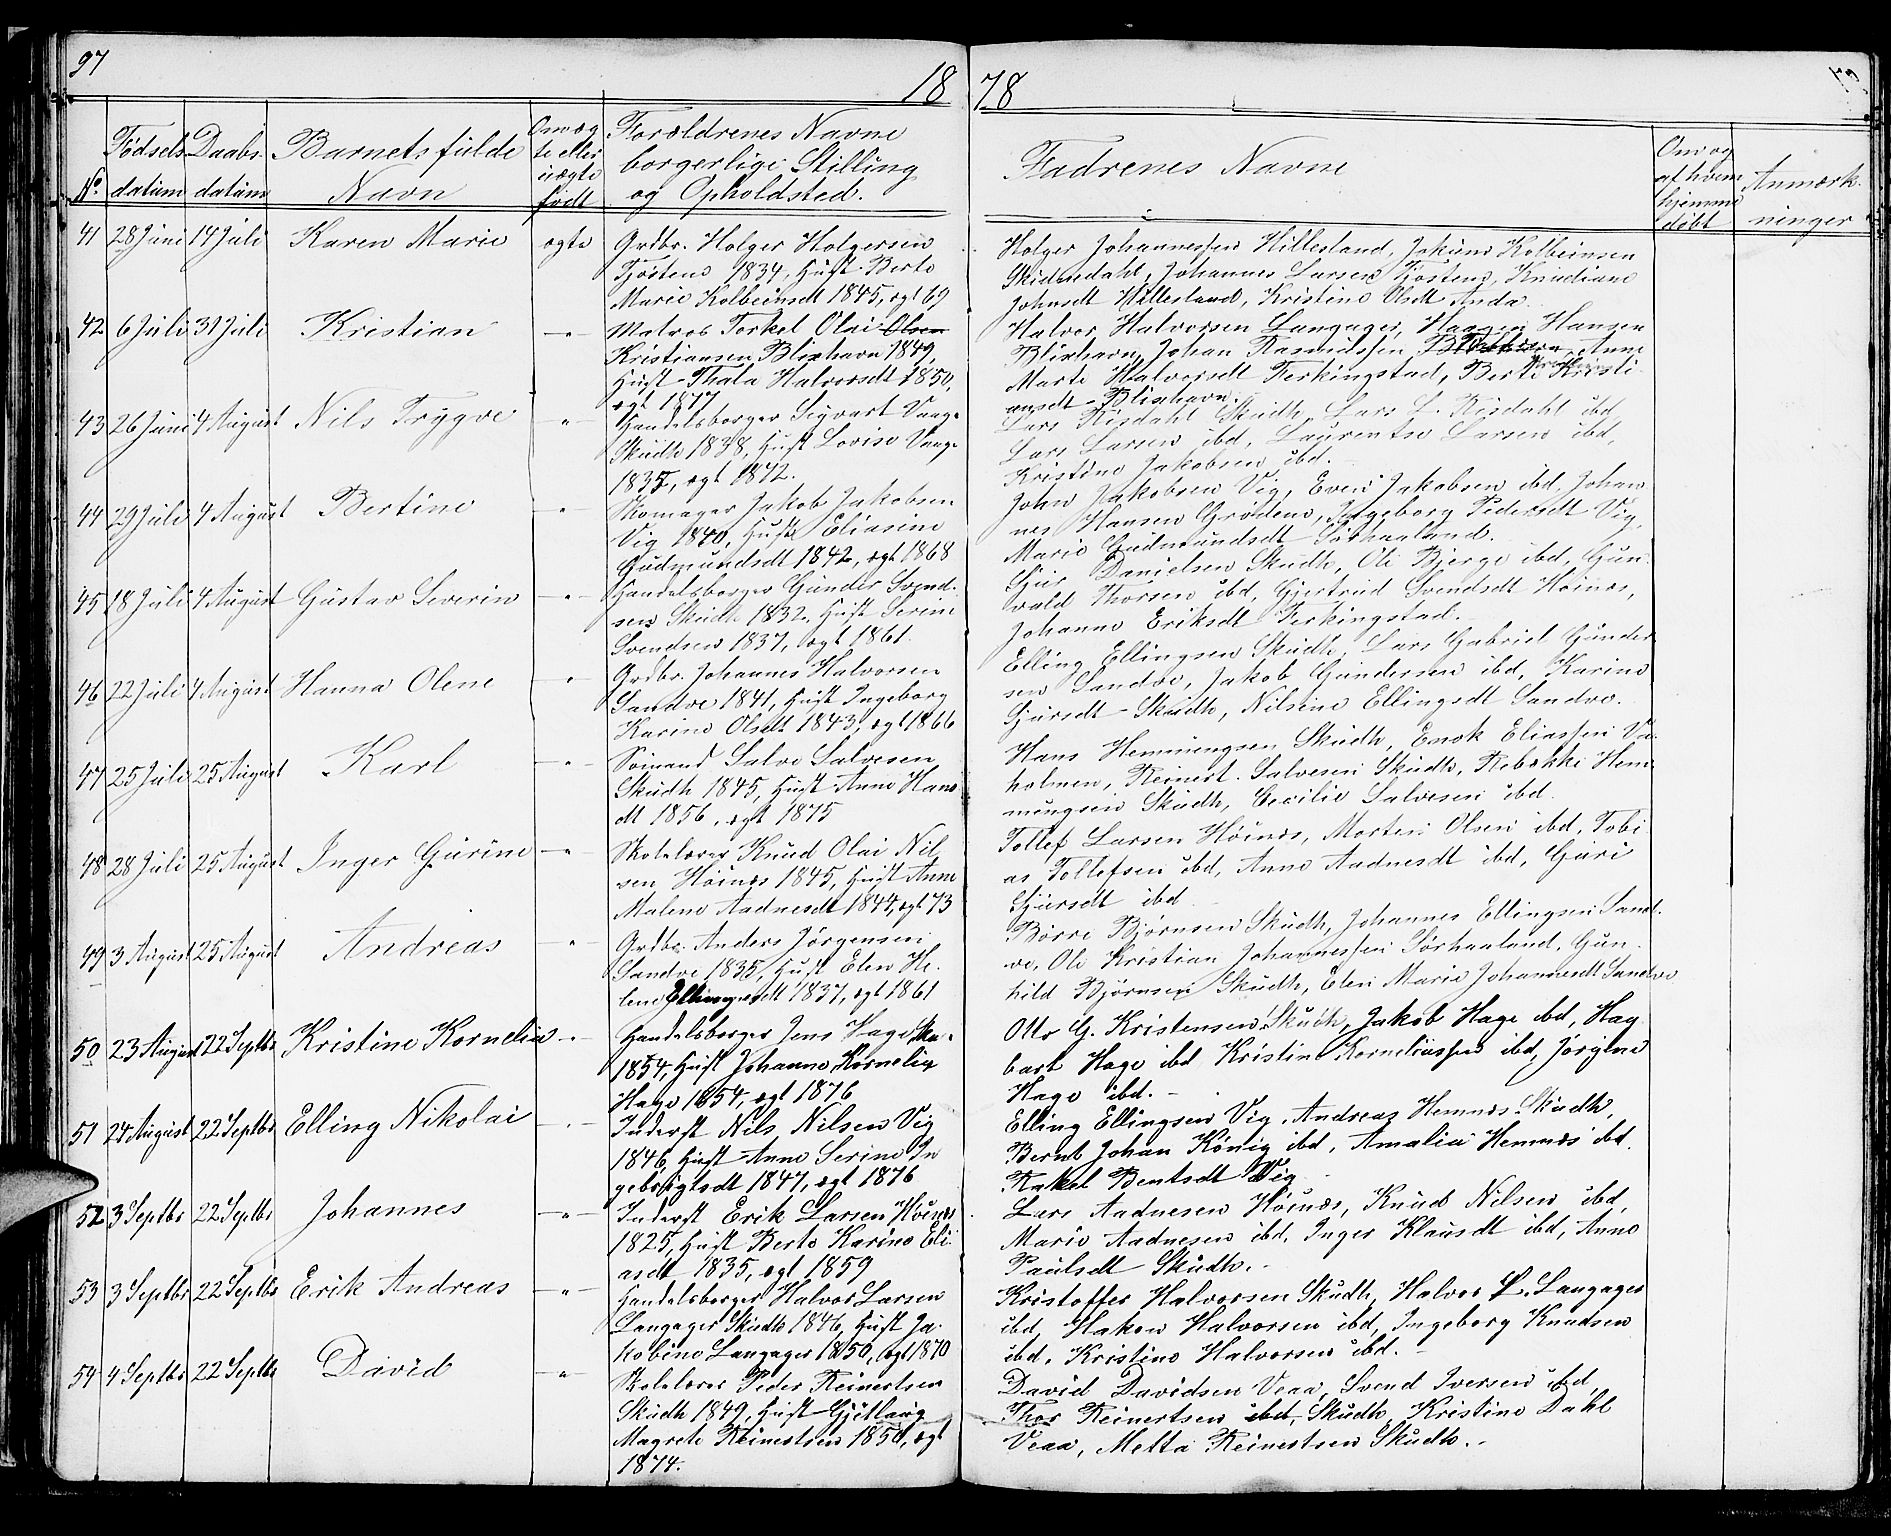 97
1878
Nº
Fødselsdatum
Daabsdatum
Barnets fulde Navn
Om ægte eller uægte født
Forældrenes Navne borgerlige Stilling og Opholdsted.
Fadrenes Navne
Om og af hvem hjemme døbt
Anmærkninger
41 28 Juni 14 Juli Karen Marie ægte
Grdbr. Holger Holgersen
Tjøstene 1834, Hust Berte
Marie Kolbeinsdt 1845, ægt 69
Holger Johannessen Hillesland, Jakim Kolbeinsen
Skidnedahl, Johannes Larsen Tjøstene, Knudiane
Johnsdt Hillesland, Kristine Olsdt Anda.
42 6 Juli 31 Juli Kristian -"-
Matros Torkel Olai Olsen
Kristiansen Blixhavn 1849,
Hust Thala Halvorsdt 1850,
ægt 1877
Halvor Halvorsen Langager, Haagen Hansen
Blixhavn, Johan Rasmussen Anne
Marte Halvorsdt Ferkingstad, Berte Kristi
ansdt Blixhavn.
43 26 Juni 4 August Nils Trygve -"-
Handelsborger Sigvart Vaage
Skudh 1838, Hust Lovise Vaage
1835, ægt 1872.
Lars Risdahl Skudh, Lars L. Risdahl ibd,
Lars Larsen ibd, Laurentse Larsen ibd,
Kristine Jakobsen ibd.
44 29 Juli 4 August Bertine -"-
Skomager Jakob Jakobsen
Vig 1840, Hust Eliasine
Gudmundsdt 1842, ægt 1868
John Jakobsen Vig, Even Jakobsen ibd, Johan
nes Hansen Grødem, Ingeborg Pedersdt Vig,
Marie Gudmundsdt Sørhaaland.
45 18 Juli 4 August Gustav Severin -"-
Handelsborger Gunder Svend-
sen Skudh 1832, Hust Serine
Svendsen 1837, ægt 1861.
Sjur Danielsen Skudh, Ole Bjerge ibd, Gun-
vald Thorsen ibd, Gjertrud Svendsdt Høines,
Johanne Eriksdt Ferkingstad.
46 22 Juli 4 August Hanna Olene -"-
Grdbr. Johannes Halvorsen
Sandve 1841, Hust Ingeborg
Karine Olsdt 1843, ægt 1866
Elling Ellingsen Skudh, Lars Gabriel Gunder
sen Sandve, Jakob Gundersen ibd, Karine
Sjursdt Skudh, Nilsine Ellingsdt Sandve.
47 25 Juli 25 August Karl -"-
Sømand Salve Salvesen
Skudh 1845, Hust Anne Hans
dt 1856, ægt 1875
Hans Hemmingsen Skudh, Enok Eliassen Va-
holmen, Reinert Salvesen Skudh, Rebekke Hem-
mingsen Skudh, Cecilie Salvesen ibd.
48 28 Juli 25 August Inger Gurine -"-
Skolelærer Knud Olai Nil
sen Høines 1845, Hust Anne
Malene Aadnesdt 1844, ægt 73
Tollef Larsen Høines, Morten Olsen ibd, Tobi
as Tollefsen ibd, Anne Aadnesdt ibd, Guri
Sjursdt ibd
49 3 August 25 August Andreas -"-
Grdbr. Anders Jørgensen
Sandve 1835, Hust Elen He-
lene Ellingsdt 1837, ægt 1861
Børre Bjørnsen Skudh, Johannes Ellingsen Sand-
ve, Ole Kristian Johannessen Sørhaaland, Gun-
hild Bjørnsen Skudh, Elen Marie Johannesdt Sandve
50 23 August 22 Septbr Kristine Kornelia -"-
Handelsborger Jens Hage Sku-
1854, Hust Johanne Kornelia
Hage 1854, ægt 1876
Otto G. Kristensen Skudh, Jakob Hage ibd, Hag
bart Hage ibd Kristine Korneliussen ibd, Jørgine
Hage ibd.
51 24 August 22 Septbr Elling Nikolai -"-
Inderst Nils Nilsen Vig
1846, Hust Anne Serine In
gebrigtsdt 1847, ægt 1876
Elling Ellingsen Vig, Andreas Hemnes Skudh,
Bernt Johan König ibd, Amalia Hemnes ibd.
Rakel Bentsdt Vig
52 3 Septbr 22 Septbr Johannes -"-
Inderst Erik Larsen Høines
1825, Hust Berte Karine Eli
asdt 1835, ægt 1859
Lars Aadnesen Høines, Knud Nilsen ibd,
Marie Aadnesen ibd, Inger Klausdt ibd, Anne
Paulsdt Skudh.
53 3 Septbr 22 Septbr Erik Andreas -"-
Handelsborger Halvor Larsen
Langager Skudh 1846, Hust Ja-
kobine Langager 1850, ægt 1870
Kristoffer Halvorsen Skudh, Halvor L. Langager
ibd, Hakon Halvorsen ibd, Ingeborg Knudsen
ibd, Kristine Halvorsen ibd.
54 4 Septbr 22 Septbr David -"-
Skolelærer Peder Reinertsen
Skudh 1849, Hust Gjitlaug
Magrete Reinertsen 1850, ægt
1874.
David Davidsen Veaa, Svend Iversen ibd,
Thor Reinertsen ibd, Skudh, Kristine Dahl
Veaa, Metta Reinertsen Skudh.